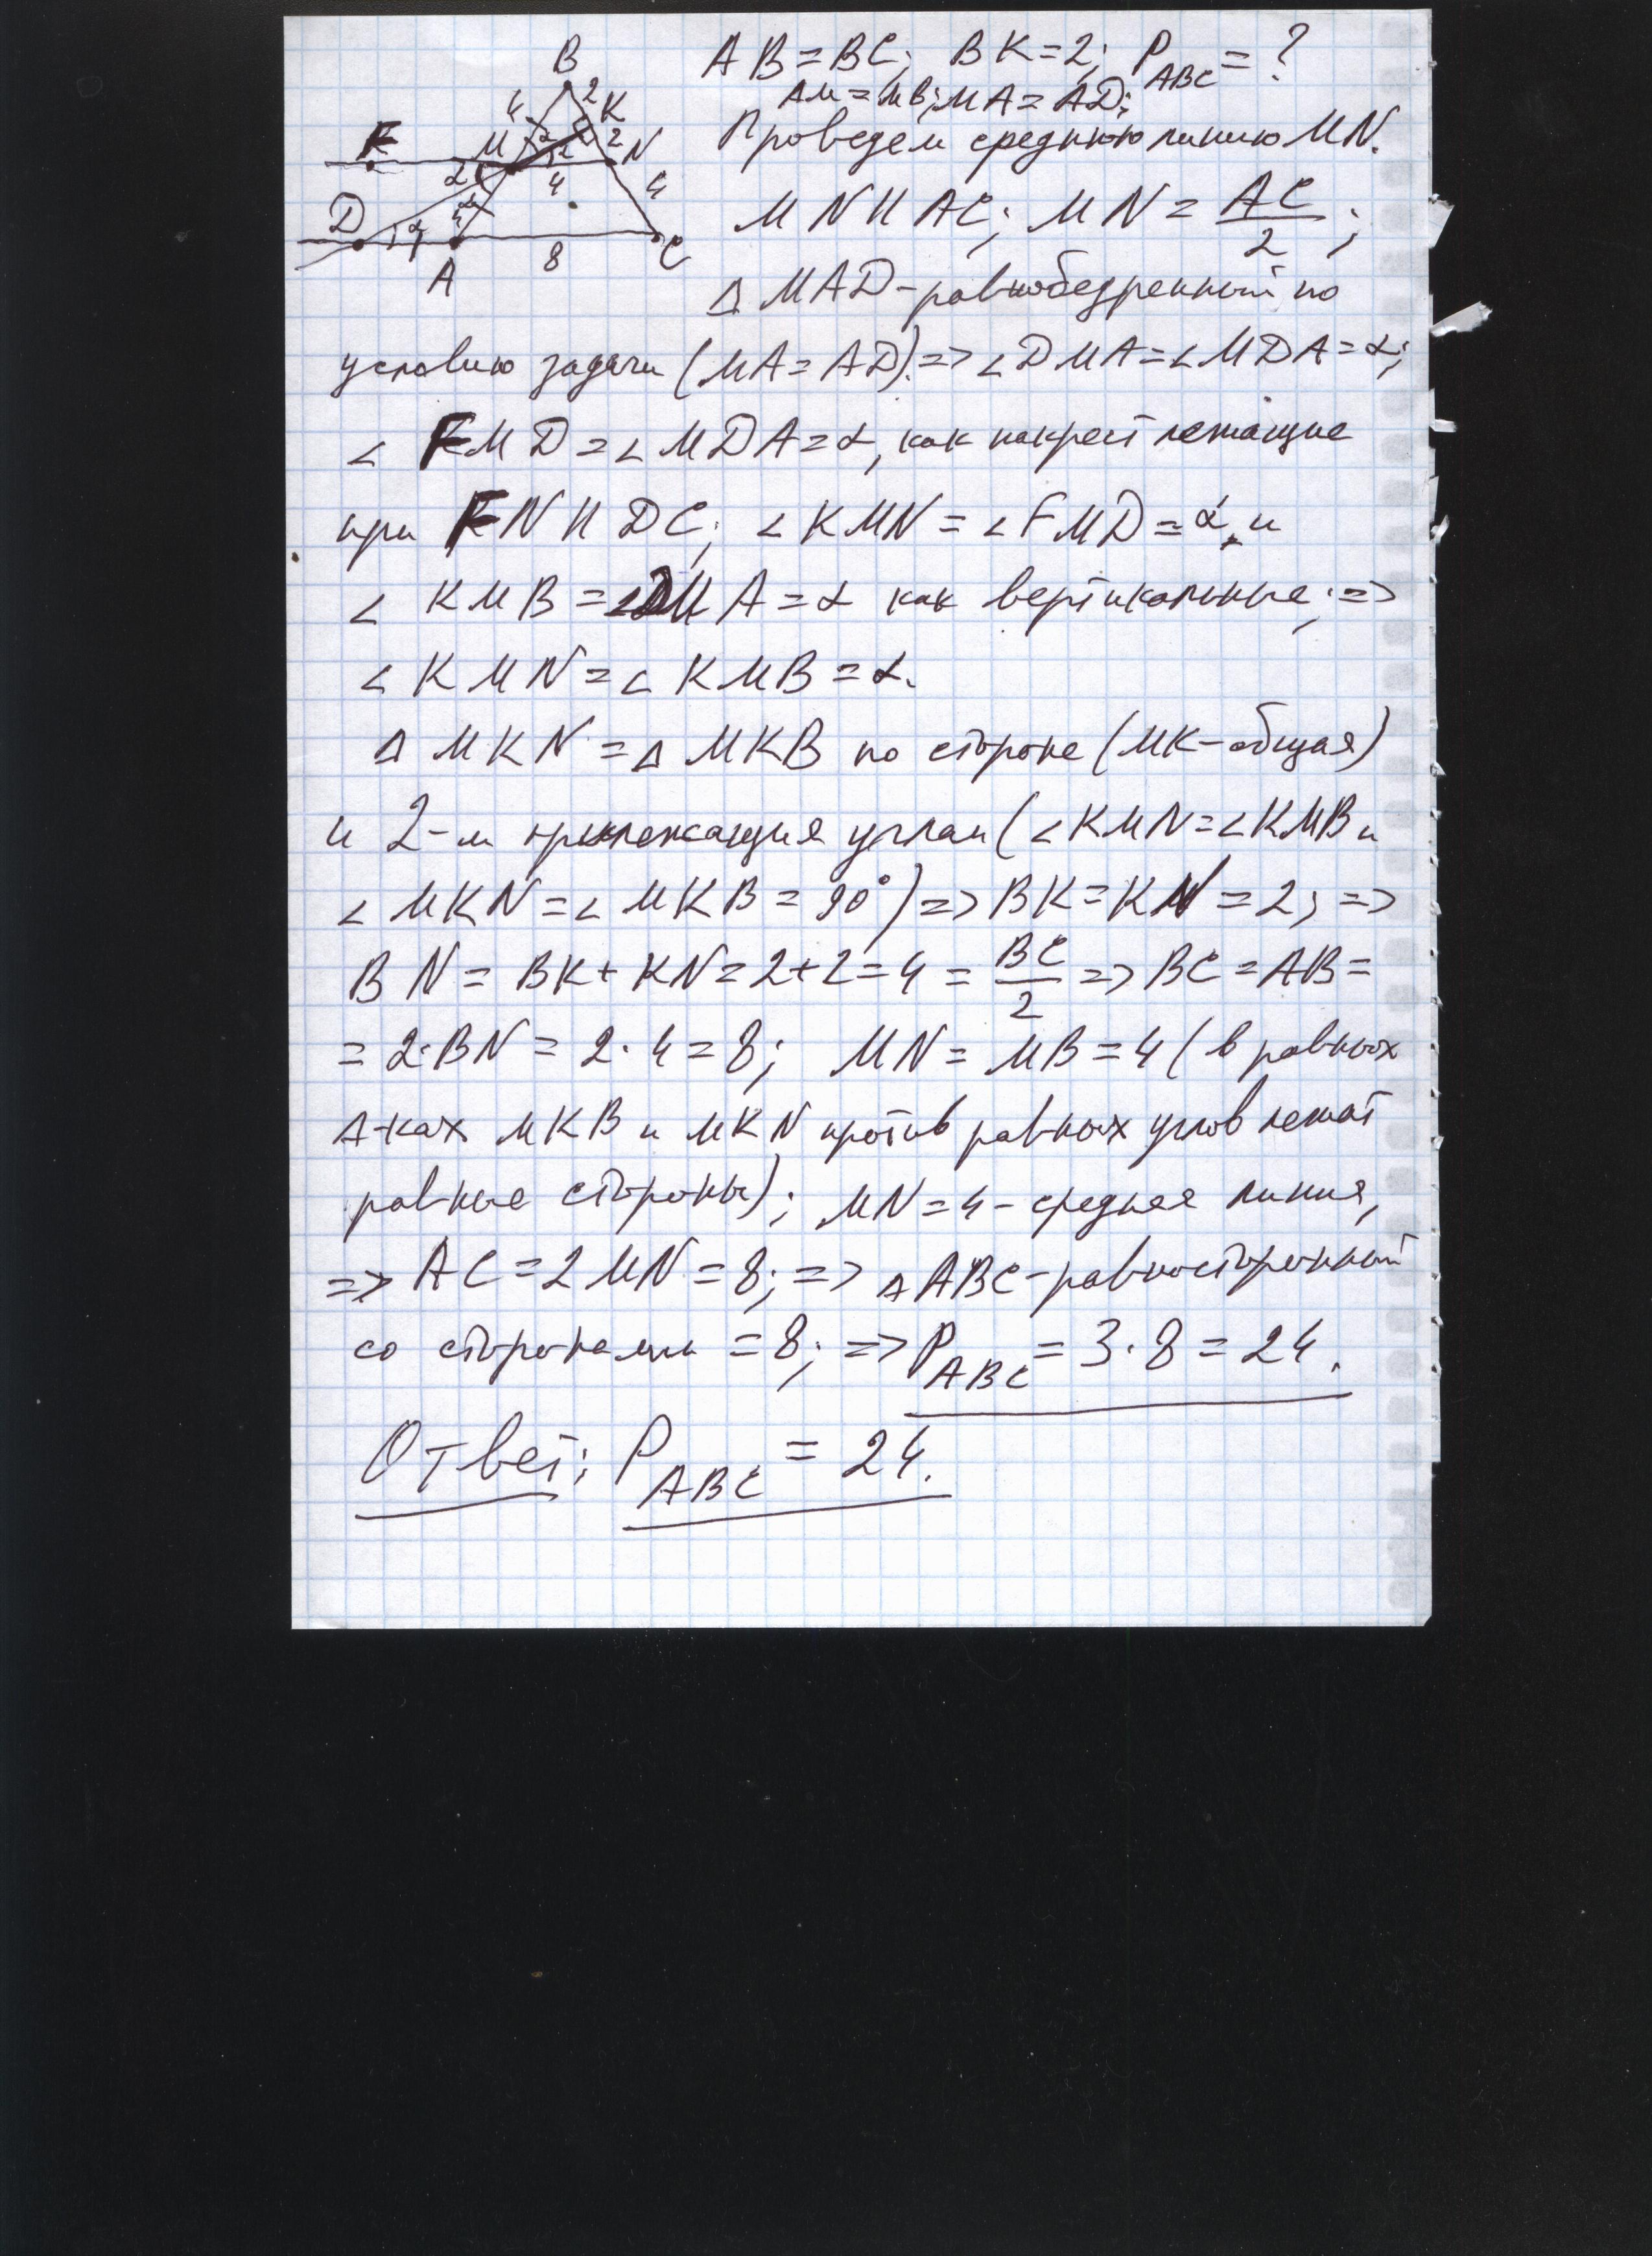 B
4
2
K
F
M
α
α
2
N
α
4
4
D
α
α
4
A
8
C
AB=BC; BK=2; P_ABC=?
AM=MB; MA=AD;
Проведем среднюю линию MN.
MN II AC; MN = AC/2;
Δ MAD-равнобедренный по
условию задачи (MA=AD).=>∠DMA=∠MDA=α;
∠ FMD=∠MDA=α, как накрест лежащие
при FN II DC; ∠KMN=∠FMD=α, и
∠ KMB=∠DMA=α как вертикальные;=>
∠KMN=∠KMB=α.
Δ MKN=Δ MKB по стороне (MK-общая)
и 2-м прилежащия углам (∠KMN=∠KMB и
∠MKN=∠MKB=90°)=>BK=KN=2;=>
BN=BK+KN=2+2=4=BC/2=>BC=AB=
=2·BN=2·4=8; MN=MB=4 (в равных
Δ-ках MKB и MKN против равных углов лежат
равные стороны); MN=4-средняя линия,
=>AC=2MN=8;=>ΔABC-равносторонний
со сторонами =8;=>P_ABC=3·8=24.
Ответ: P_ABC=24.